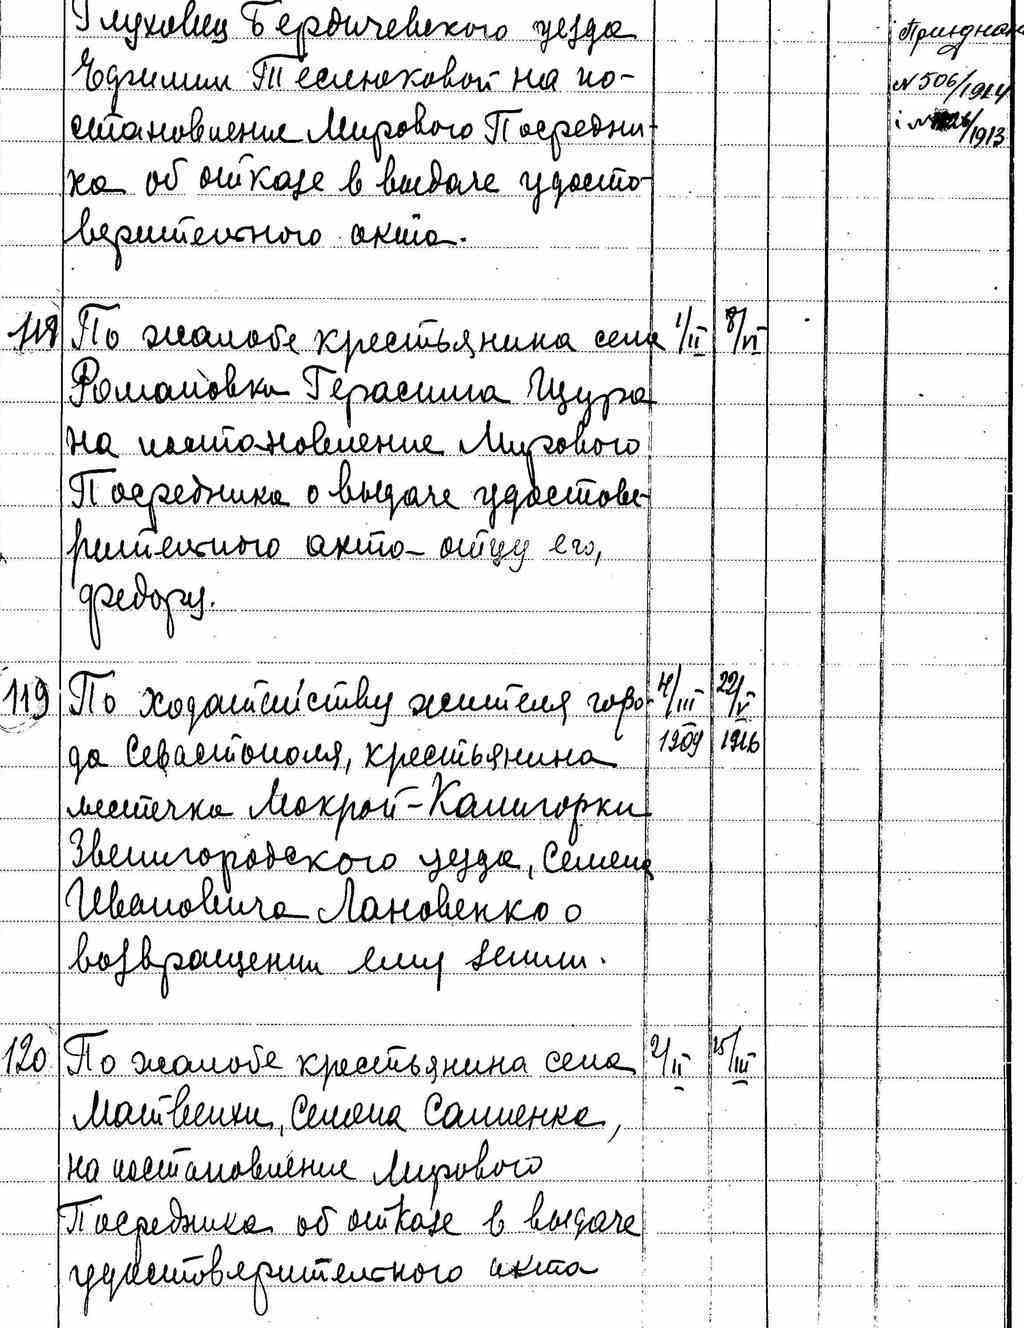 Глуховец Бердичевского уезда
Теслюковой на по-
становление Мирового Посредни-
ка об отказе в выдаче удосто-
верительного акта.
N 506/1914
/1913
118 По жалобе крестьянина села 1/II 8/VI
Романовки Герасима Щура
на постановление Мирового
Посредника о выдаче удостове-
рительного акта отцу его,
Федору.
119 По ходатайству жителя горо- 4/III 22/V
да Севастополя, крестьянина 1909 1916
местечка Мокрой-Калигорки
Звенигородского уезда, Семена
Ивановича Лановенко о
возвращении ему земли.
120 По жалобе крестьянина села 2/II 15/III
Матвеихи, Семена
на постановление Мирового
Посредника об отказе в выдаче
удостоверительного акта